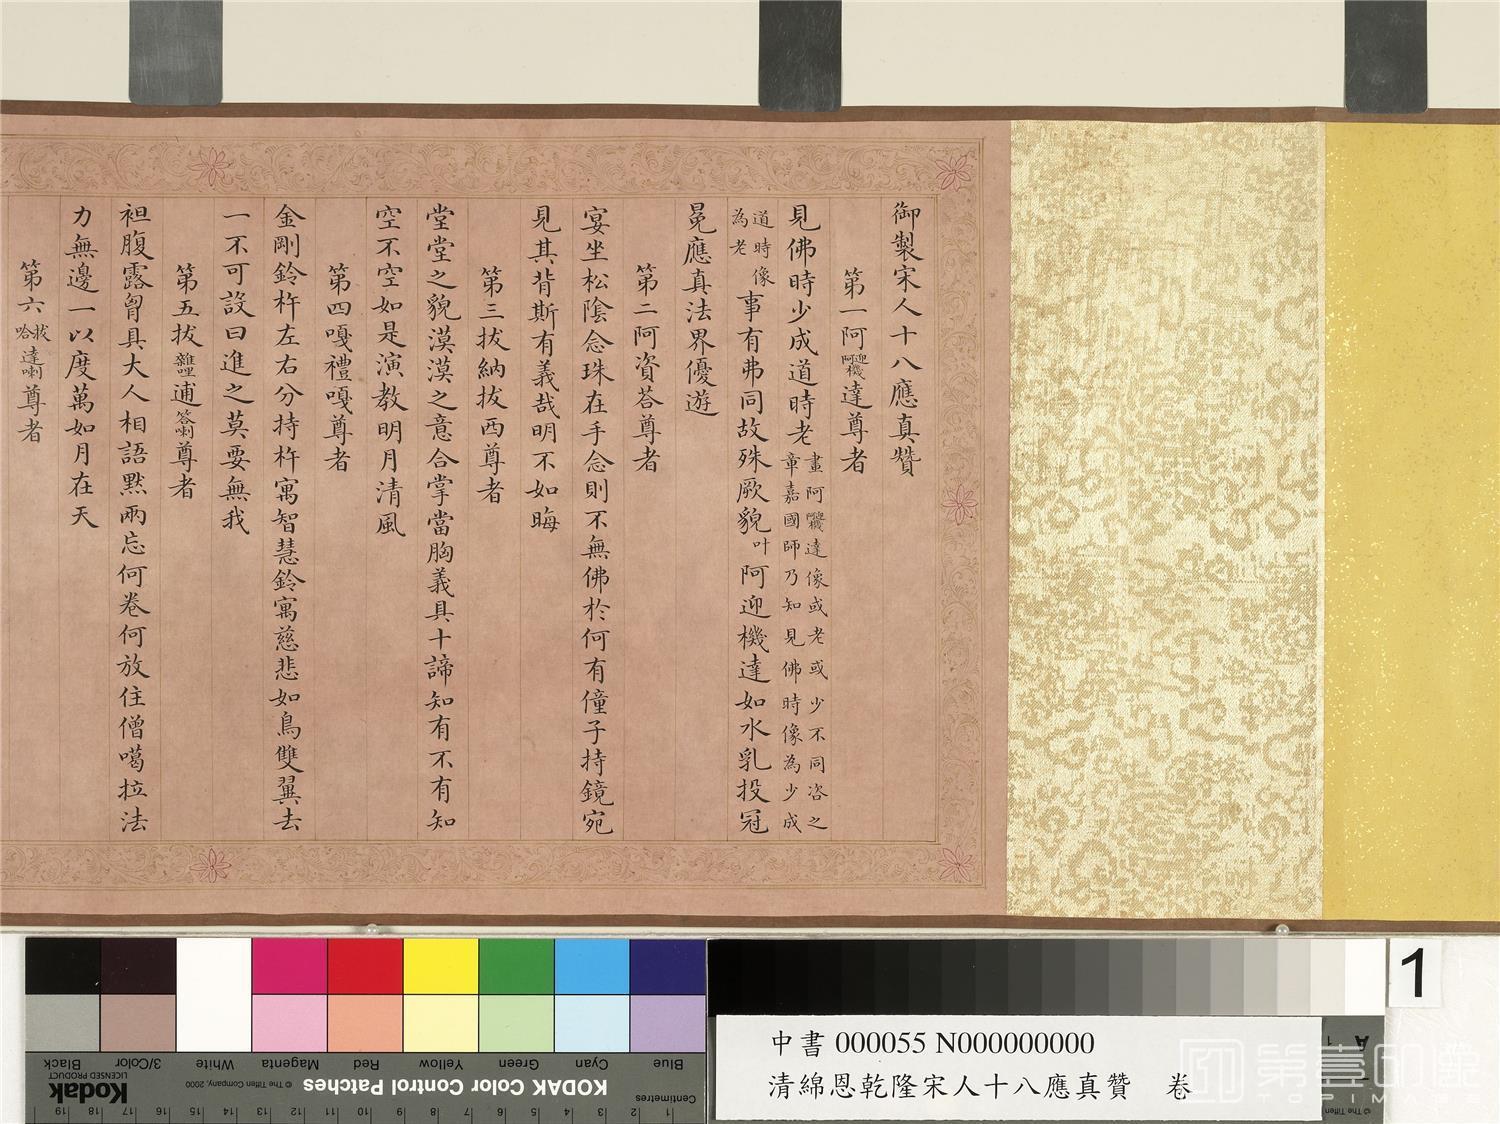 御製宋人十八應真贊
第一阿迎阿機達尊者
見佛時少成道時老畫阿迎阿機達像或老或少不同咨之章嘉國師乃知見佛時像為少成
道時像為老事有弗同故殊厥貌叶阿迎機達如水乳投冠
冕應真法界優遊
第二阿資荅尊者
宴坐松陰念珠在手念則不無佛於何有僮子持鏡宛
見其背斯有義哉明不如晦
第三拔納拔西尊者
堂堂之貌漠漠之意合掌當胸義具十諦知有不有知
空不空如是演教明月清風
第四嘎禮嘎尊者
金剛鈴杵左右分持杵寓智慧鈴寓慈悲如鳥雙翼去
一不可設曰進之莫要無我
第五拔雜哩逋荅喇尊者
袒腹露胷具大人相語默兩忘何卷何放住僧噶拉法
力無邊一以度萬如月在天
第六拔哈達喇尊者
Blue Cyan Green Yellow Red Magenta White 3/Color Black
KODAK Color Control Patches © The Tiffen Company, 2000 Kodak LICENSED PRODUCT
Centimetres 1 2 3 4 5 6 7 8 9 10 11 12 13 14 15 16 17 18 19
1
A 1
中書 000055 N000000000
清綿恩乾隆宋人十八應真贊 卷
© The Tiffen
第壹印雕
TOPIMAGE